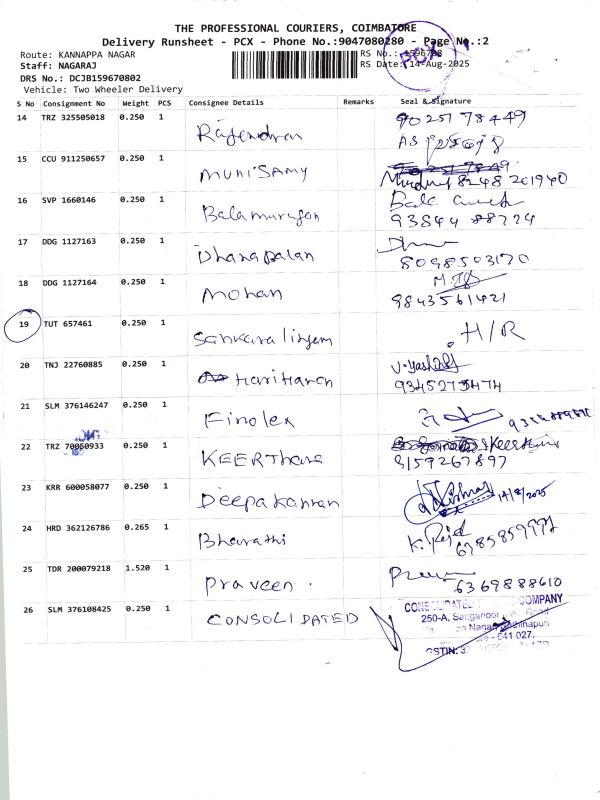 THE PROFESSIONAL COURIERS, COIMBATORE
Delivery Runsheet - PCX - Phone No.:9047080280 - Page No.:2
Route: KANNAPPA NAGAR RS No.:
Staff: NAGARAJ RS Date: 14-Aug-2025
PCX
DRS No.: DCJB159670802
Vehicle: Two Wheeler Delivery
S No Consignment No Weight PCS Consignee Details Remarks Seal & Signature
14 TRZ 325505018 0.250 1 Rajendran 90251 78449
15 CCU 911250657 0.250 1 MUNISAMY 8248 201940
16 SVP 1660146 0.250 1 Balamurugan Bala 93844 88724
17 DDG 1127163 0.250 1 Dhanapalan 8098503170
18 DDG 1127164 0.250 1 Mohan 9843561421
19 TUT 657461 0.250 1 Sankaralingam H/R
20 TNJ 22760885 0.250 1 Hariharan 9345273474
21 SLM 376146247 0.250 1 Finolex
22 TRZ 70050933 0.250 1 KEERThana 9159267897
23 KRR 600058077 0.250 1 Deepakannan 14/8/2025
24 HRD 362126786 0.265 1 Bharathi
25 TDR 200079218 1.520 1 Praveen. 6369888610
26 SLM 376108425 0.250 1 CONSOLIDATED
COMPANY
250-A, Sanganoor Road
641 027.
GSTIN: